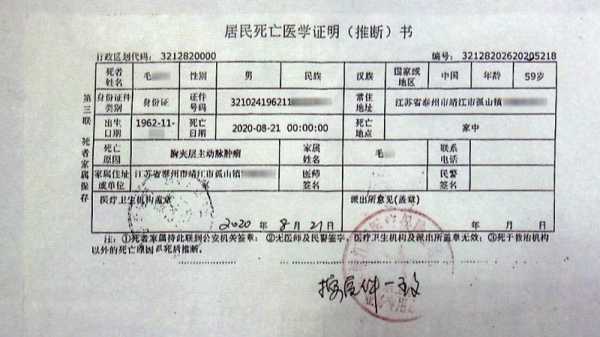 居民死亡医学证明（推断）书
行政区划代码： 3212820000 编号： 32128202620205218
死者姓名 毛 性别 男 民族 汉族 国家或地区 中国 年龄 59岁
第三联 死者家属保存
身份证件类别 身份证 证件号码 321024196211 常住地址 江苏省泰州市靖江市孤山镇
出生日期 1962-11- 死亡日期 2020-08-21 00:00:00 死亡地点 家中
死亡原因 胸夹层主动脉肿瘤 家属姓名 毛 联系电话
家属住址或单位 江苏省泰州市靖江市孤山镇 家 医师签名 民警签名
医疗卫生机构盖章 派出所意见(盖章)
2020 年 8 月 21 日 年 月 日
注：①死者家属持此联到公安机关签章；②无医师及民警签字，医疗卫生机构及派出所盖章无效；③死于救治机构
以外的死亡原因系死后推断。
与原件一致